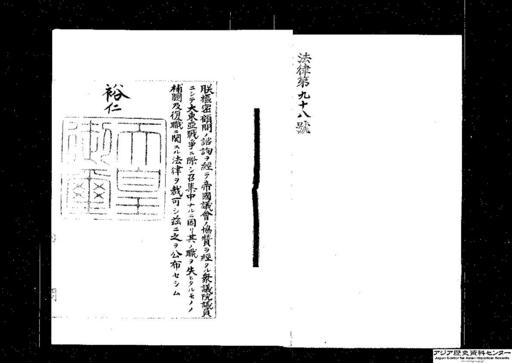 法律第九十八號
朕樞密顧問ノ諮詢ヲ經テ帝國議會ノ協贊ヲ經タル衆議院議員
ニシテ大東亞戰爭ニ際シ召集中ナルニ因リ其ノ職ヲ失ヒタルモノノ
補闕及復職ニ關スル法律ヲ裁可シ茲ニ之ヲ公布セシム
裕仁
天皇御璽
アジア歴史資料センター
Japan Center for Asian Historical Records